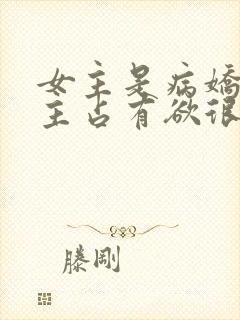 女主是病娇
主占有欲很
滕刚